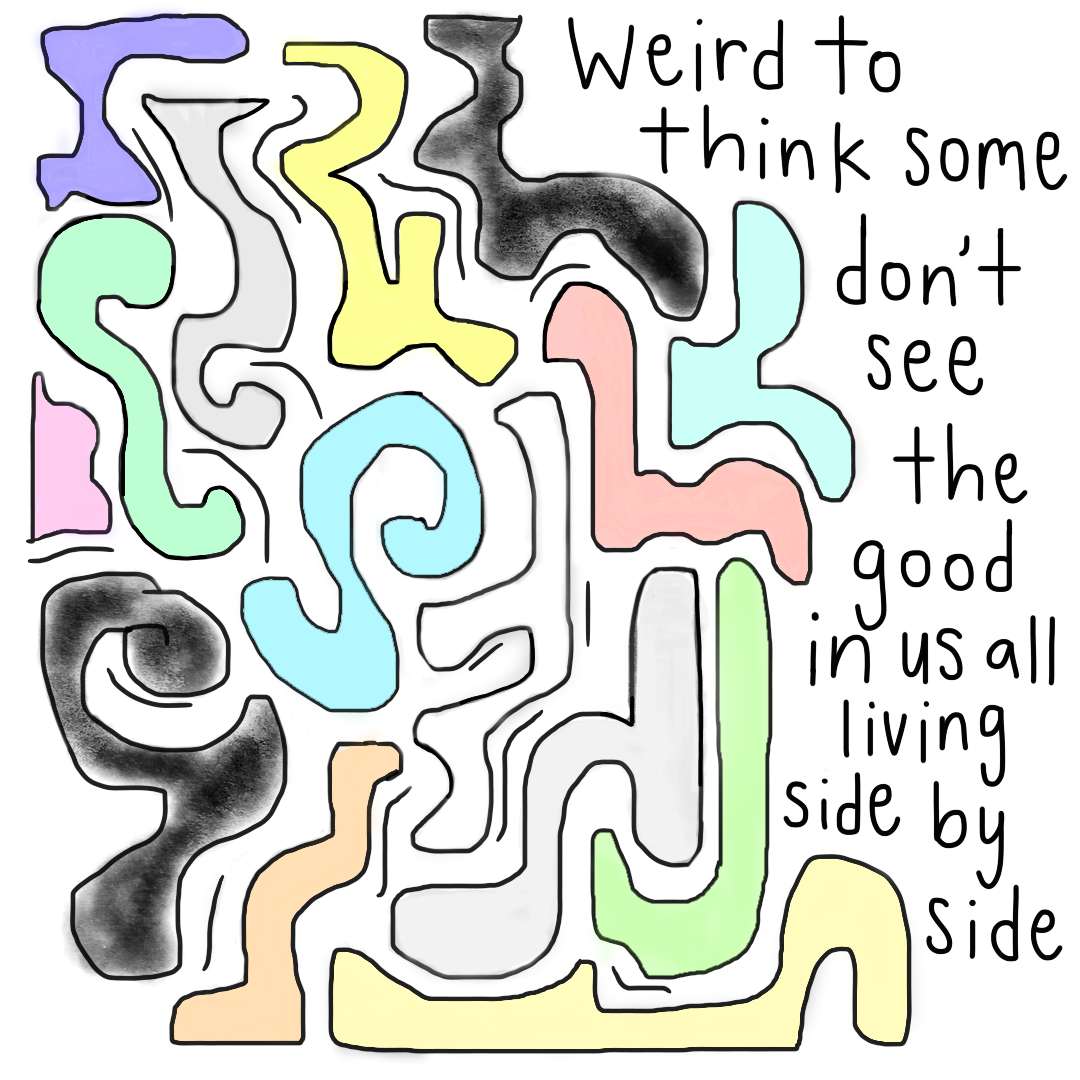 Weird to
think some
don't
see
the
good
in us all
living
side by
side